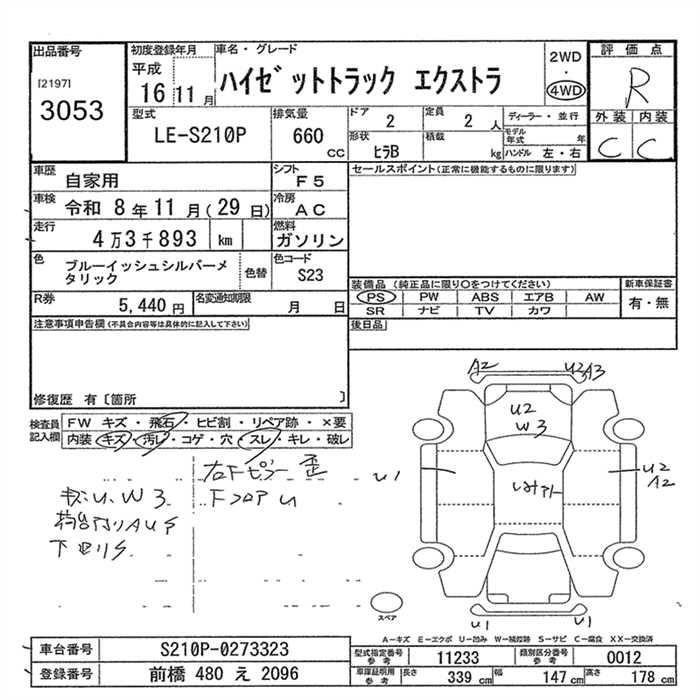 出品番号
[2197]
3053
初度登録年月
平成
16 11 月
車名・グレード
ハイゼットトラック エクストラ
2WD
・
4WD
評価点
R
外装 内装
C C
型式
LE-S210P
排気量
660
CC
ドア
2
定員
2 人
ディーラー・並行
形状
ヒラB
積載
kg
モデル年式 年
ハンドル 左・右
車歴
自家用
シフト
F5
車検
令和 8年11月(29日)
冷房
AC
走行
4万3千893 km
燃料
ガソリン
色
ブルーイッシュシルバーメ
タリック
色替
色コード
S23
R券
5,440 円
名変通知期限
月 日
セールスポイント(正常に機能するものに限ります)
装備品(純正品に限り〇をつけてください)
PS PW ABS エアB AW
SR ナビ TV カワ
新車保証書
有・無
後日品
注意事項申告欄(不具合内容等は具体的に記入して下さい)
修復歴 有〔箇所 〕
検査員
記入欄
FW キズ・飛石・ヒビ割・リペア跡・×要
内装・キズ・汚レ・コゲ・穴・スレ・キレ・破レ
右下ピラー歪
FフロアU
キズU、W3
下廻りS
A2
U2 A3
U2
W3
U1
U2
A2
U1
U1
スペア
A−キズ E−エクボ U−凹み W−補修跡 S−サビ C−腐食 XX−交換済
車台番号
S210P-0273323
登録番号
前橋 480 え 2096
型式指定番号
参考
11233
類別区分番号
参考
0012
車庫証明用
参考
長さ
339 cm
幅
147 cm
高さ
178 cm